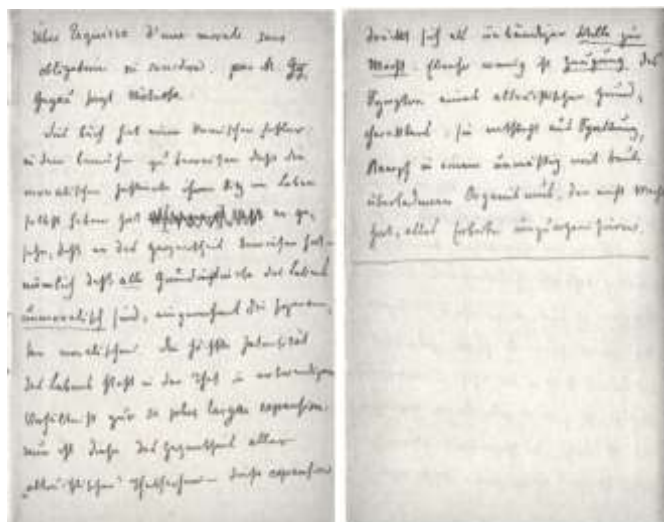 Über Esquisse d'une morale sans
obligation ni sanction. par M. Gy.
Guyau sagt Nietzsche
Dies Buch hat einen komischen Fehler:
in dem Bemühen zu beweisen daß die
moralischen Instinkte ihren Sitz im Leben
selbst haben hat er
sehn, daß er das Gegentheil bewiesen hat –
nämlich daß alle Grundinstinkte des Lebens
unmoralisch sind, eingerechnet die sogenann-
ten moralischen. Die höchste Intensität
des Lebens steht in der That in nothwendigem
Verhältniß zur sa plus large expansion.
nur ist diese das Gegentheil aller
„altruistischen" Thatsachen – diese expansion
drückt sich als unbändiger Wille zur
Macht. Ebenso wenig ist Zeugung das
Symptom eines altruistischen Grund-
charakters: sie entsteht aus Spaltung,
Kampf in einem unmäßig mit Beute
überladenen Organismus, der nicht Macht
hat, alles Eroberte einzuorganisiren.